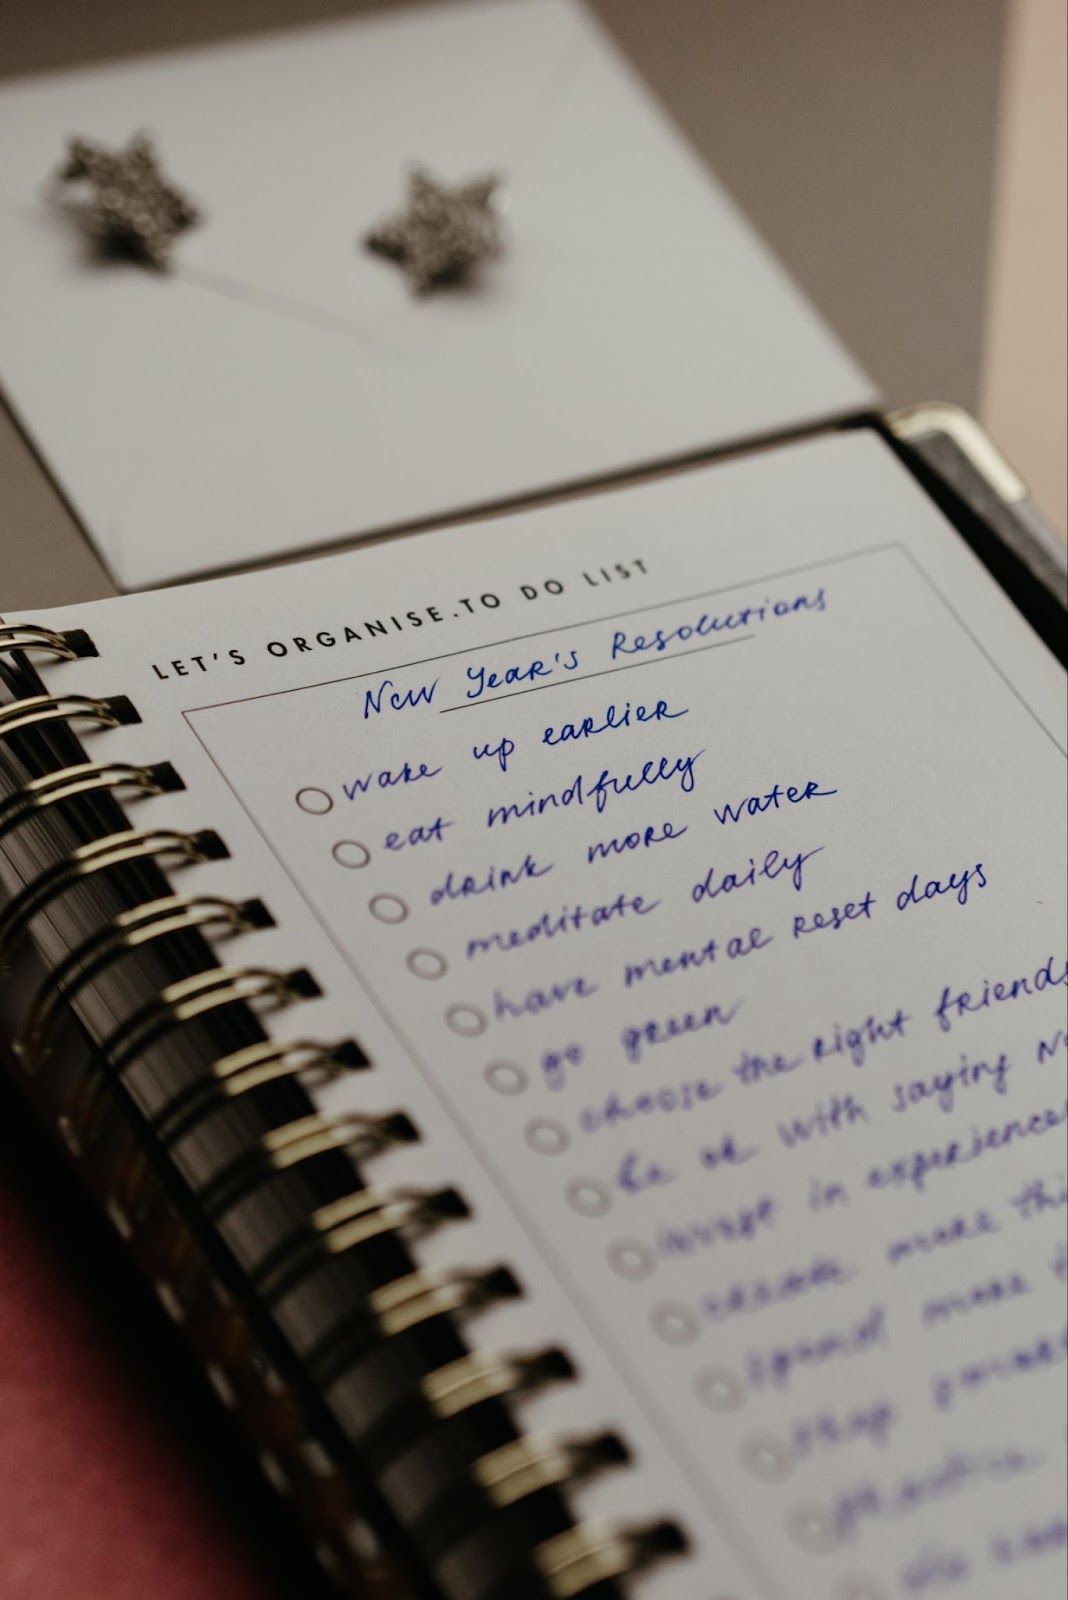 LET'S ORGANISE.TO DO LIST
New Year's Resolutions
wake up earlier
eat mindfully
drink more water
meditate daily
have mental reset days
go green
choose the right friends
be ok with saying
invest in
create more
spend more